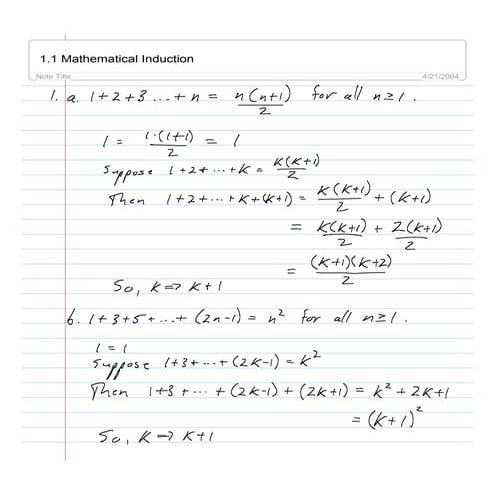 1.1 Mathematical Induction
Note Title 4/21/2004
1. a. 1+2+3 ...+n = n(n+1)/2 for all n≥1.
1 = 1·(1+1)/2 = 1
Suppose 1+2+...+K = K(K+1)/2
Then 1+2+...+K+(K+1) = K(K+1)/2 + (K+1)
= K(K+1)/2 + 2(K+1)/2
= (K+1)(K+2)/2
So, K ⇒ K+1
b. 1+3+5+...+(2n-1) = n² for all n≥1.
1 = 1
Suppose 1+3+...+(2K-1) = K²
Then 1+3+...+(2K-1)+(2K+1) = K²+2K+1
= (K+1)²
So, K ⇒ K+1